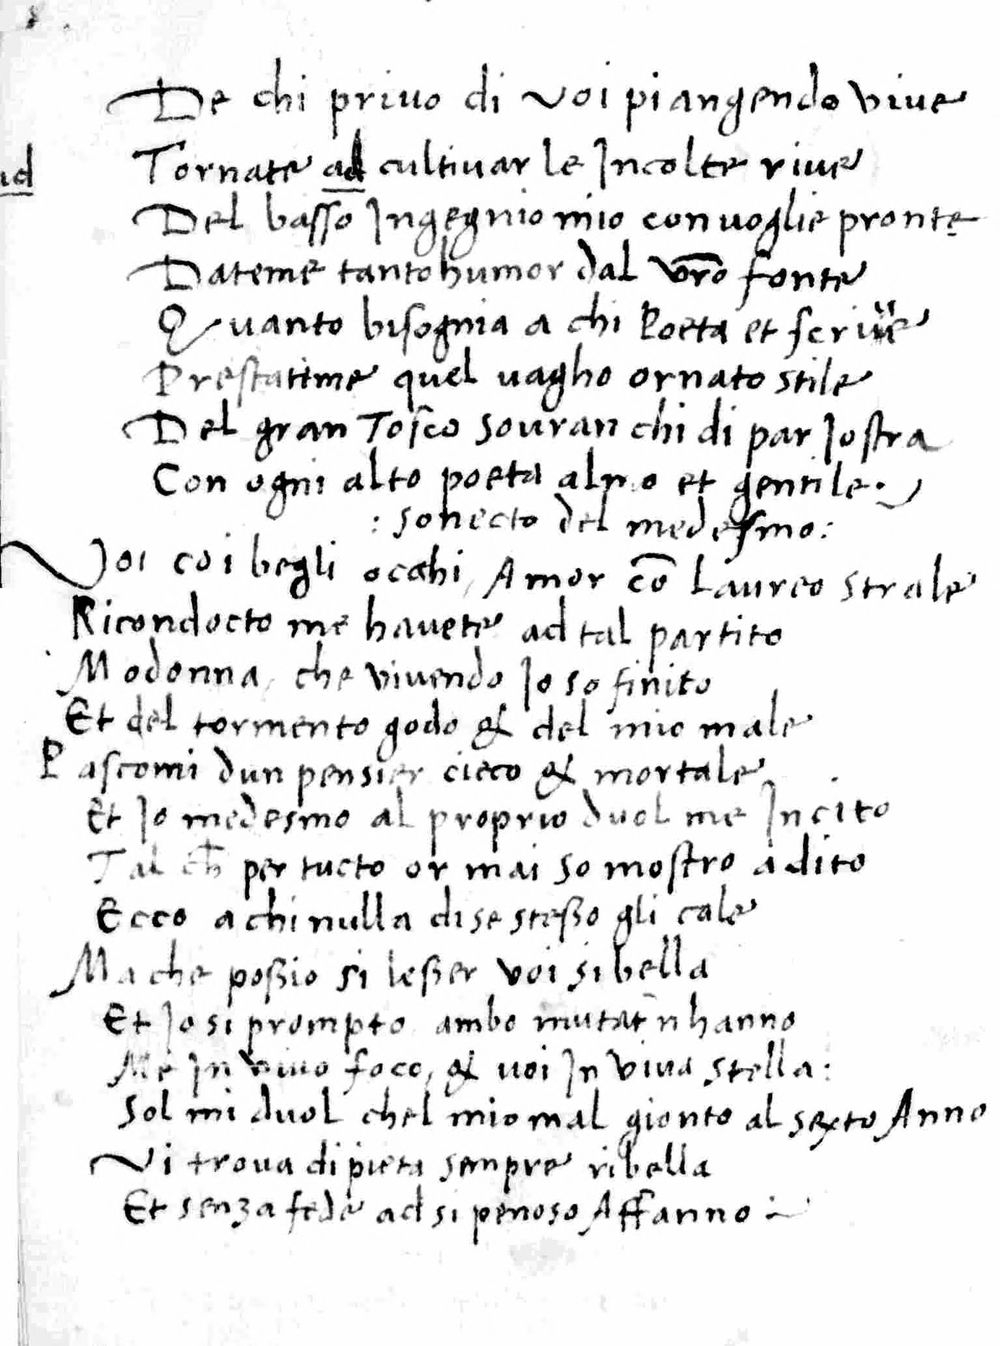 De chi priuo di voi piangendo viue
ad
Tornate ad cultiuar le Incolte riue
Del basso Ingegnio mio con uoglie pronte
Dateme tanto humor dal vr̄o fonte
Quanto bisognia a chi Poeta et scriue
Prestatime quel uagho ornato stile
Del gran Tosco souran chi di par Iostra
Con ogni alto poeta almo et gentile.
: sonecto del medesmo:
Voi coi begli occhi, Amor cō Laureo strale
Ricondocto me hauete ad tal partito
Modonna, che viuendo Io so finito
Et del tormento godo & del mio male
Pascomi dun pensier cieco & mortale
Et Io medesmo al proprio duol me Incito
Tal ch̄ per tucto or mai so mostro a dito
Ecco a chi nulla di se steßo gli cale
Ma che poßio si leßer voi si bella
Et Io si prompto ambo mutat n hanno
Me In viuo foco, & uoi In viua stella:
Sol mi duol chel mio mal gionto al sexto Anno
Vi troua di pieta sempre ribella
Et senza fede ad si penoso Affanno